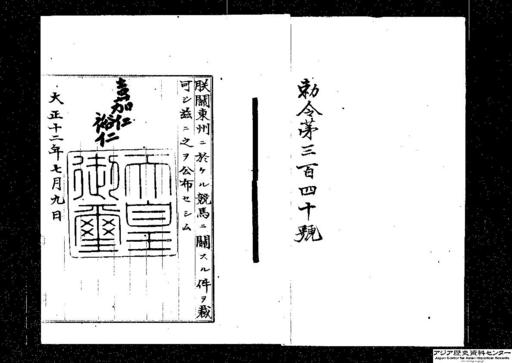 勅令第三百四十號
朕關東州ニ於ケル競馬ニ關スル件ヲ裁
可シ茲ニ之ヲ公布セシム
嘉仁
裕仁
天皇
御璽
大正十二年七月九日
アジア歴史資料センター
Japan Center for Asian Historical Records